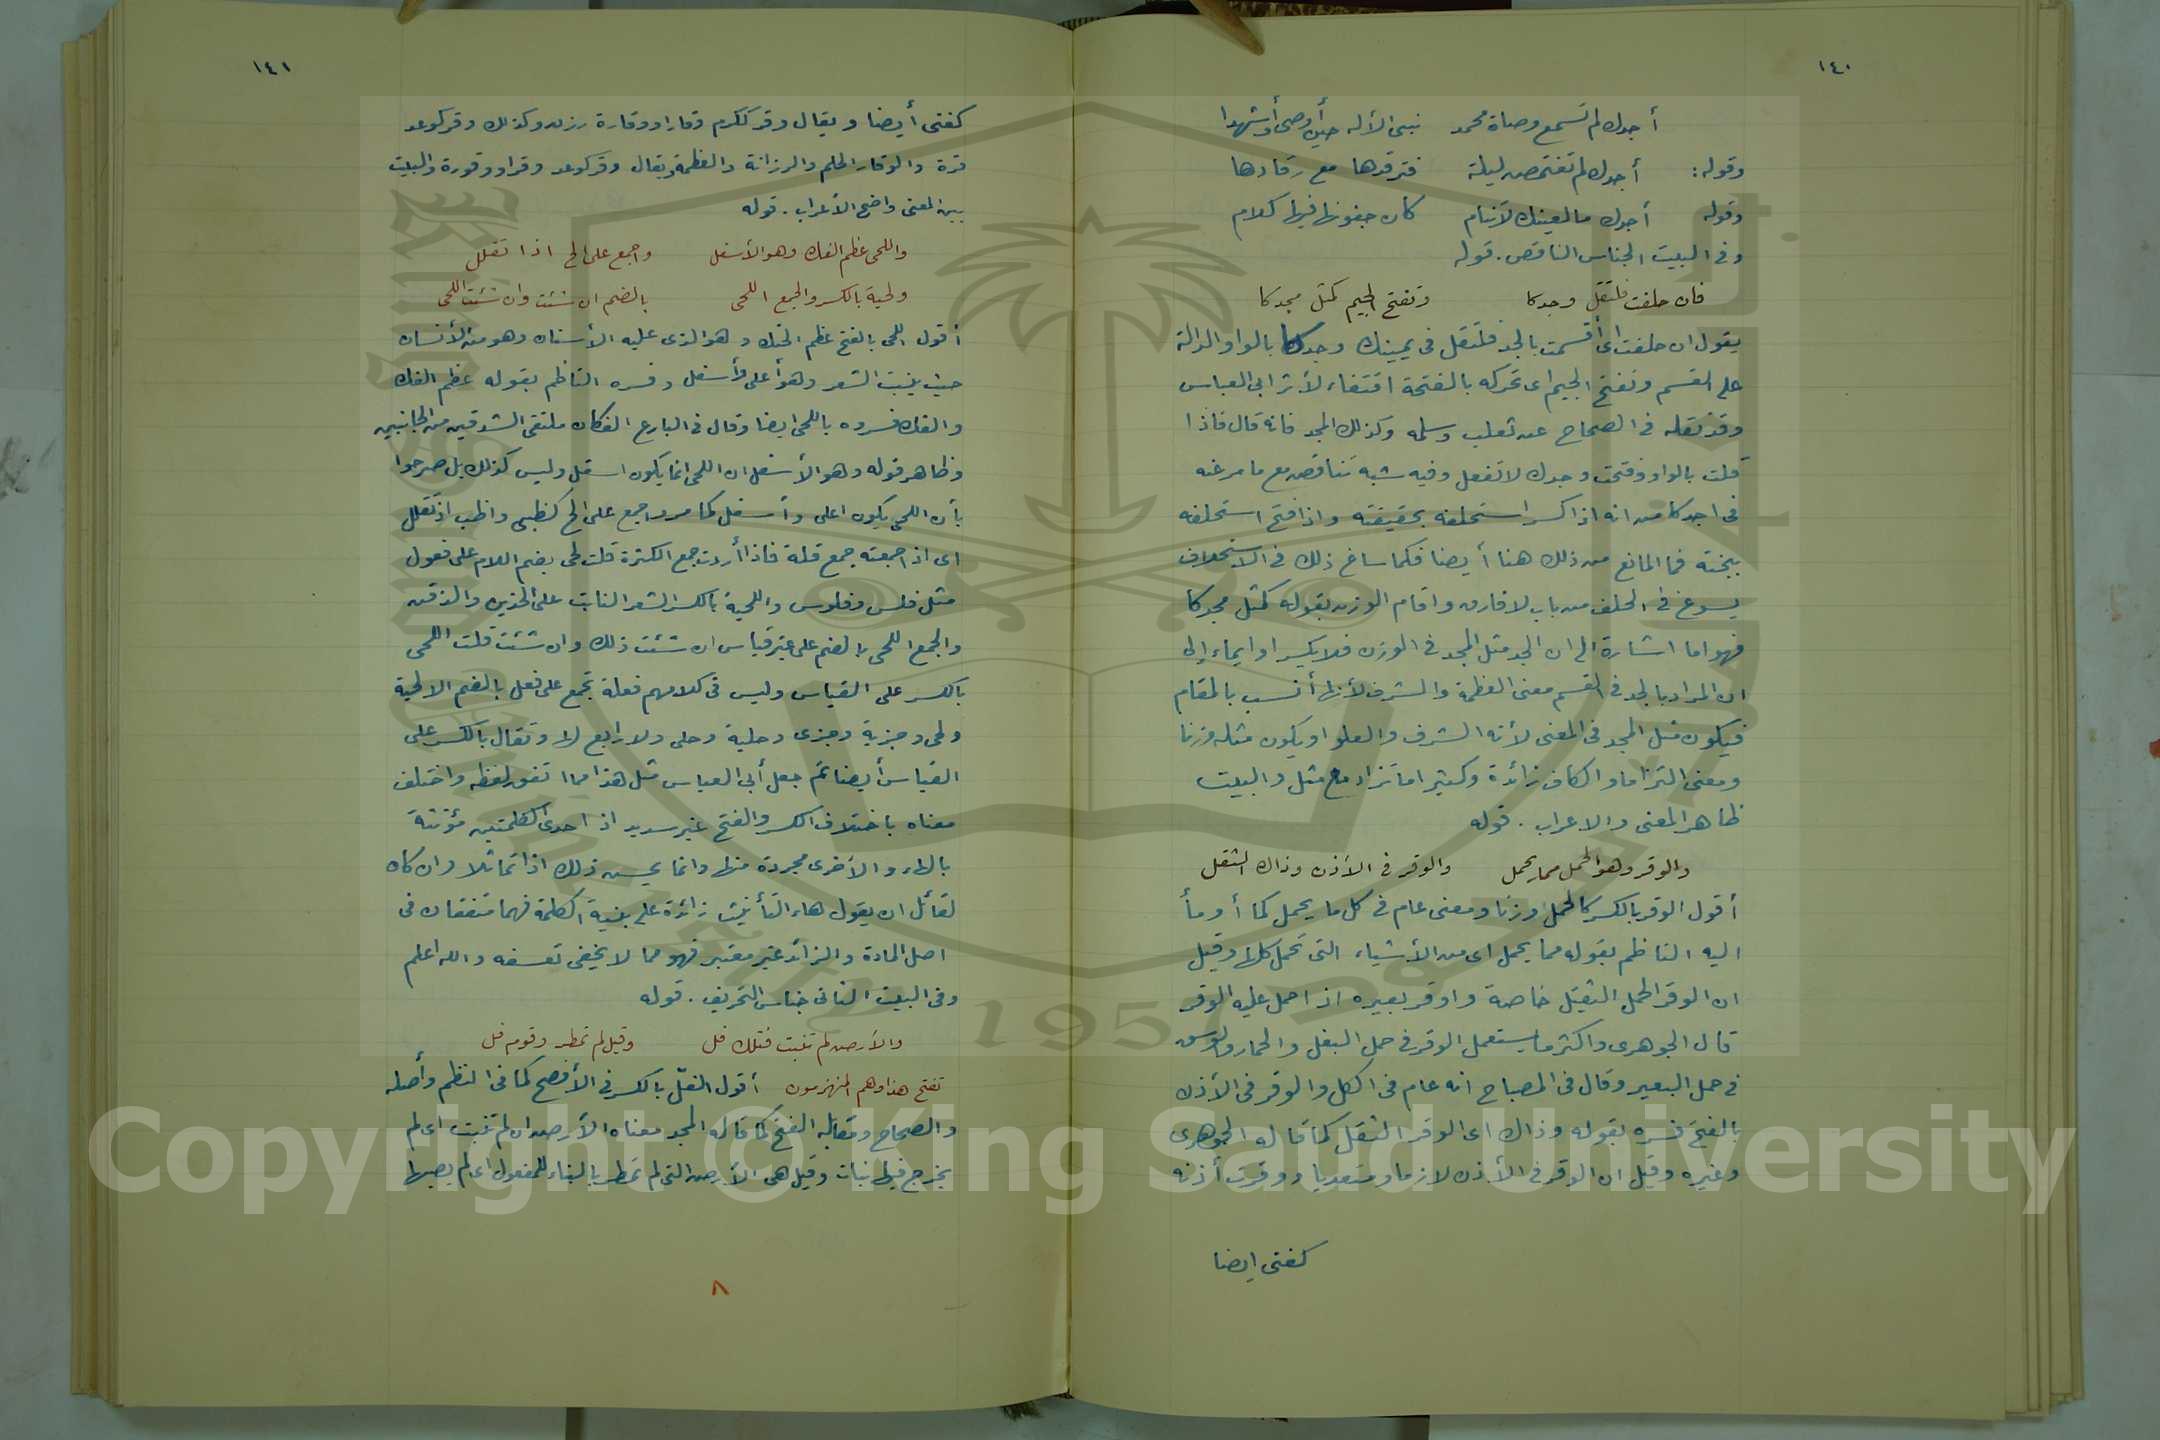 ١٤٠
أجدك لم تسمع وصاة محمد نبي الأله حين أوصى وأشهدا
وقوله: أجدك لم تغتمض ليلة فترقدها مع رقادها
وقوله أجدك ما لعينك لا تنام كأن جفونها فيها كلام
وفي البيت الجناس الناقص. قوله
فان حلفت فلتقل وجدكا وتفتح الجيم كمثل مجدكا
يقول ان حلفت اى أقسمت بالجد فلتقل في يمينك وجدكا بالواو الدالة
على القسم وتفتح الجيم اى تحركه بالفتحة اقتفاء لأثر ابى العباس
وقد نقله في الصحاح عن ثعلب وسلمه وكذلك المجد فانه قال فاذا
قلت بالواو فتحت وجدك لا تفعل وفيه شبه تناقض مع ما مر عنه
في اجدكا من انه اذا كسر استحلفه بحقيقته واذا فتح استحلفه
ببخته فما المانع من ذلك هنا أيضا فكما ساغ ذلك في الاستحلاف
يسوغ في الحلف من باب لا فارق واقام الوزن بقوله كمثل مجدكا
فهو اما اشارة الى ان الجد مثل المجد في الوزن فلا يكسر او ايماء إلى
ان المراد بالجد في القسم معنى العظمة والشرف لأنها أنسب بالمقام
فيكون مثل المجد في المعنى لأنه الشرف والعلو او يكون مثله وزنا
ومعنى التزاما والكاف زائدة وكثيرا ما تزاد مع مثل والبيت
ظاهر المعنى والاعراب. قوله
والوقر وهو الحمل مما يحمل والوقر في الأذن وذاك الثقل
أقول الوقر بالكسر كالحمل وزنا ومعنى عام في كل ما يحمل كما أومأ
اليه الناظم بقوله مما يحمل اى من الأشياء التى تحمل كلها وقيل
ان الوقر الحمل الثقيل خاصة واوقر بعيره اذا حمل عليه الوقر
قال الجوهرى واكثر ما يستعمل الوقر في حمل البغل والحمار والوسق
في حمل البعير وقال في المصباح انه عام في الكل والوقر في الأذن
بالفتح فسره بقوله وذاك اى الوقر الثقل كما قاله الجوهرى
وغيره وقيل ان الوقر في الأذن لازما ومتعديا ووقرت أذنه
كفتى ايضا
١٤١
كفتى أيضا ويقال وقر ككرم وقارا ووقارة رزن وكذلك وقر كوعد
قرة والوقار الحلم والرزانة والعظمة ويقال وقر كوعد وقرا ووقورة والبيت
بين المعنى واضح الأعراب. قوله
واللحى عظم الفك وهو الأسفل واجمع على الح اذا تقلل
ولحية بالكسر والجمع اللحى بالضم ان شئت وان شئت اللحى
أقول اللحى بالفتح عظم الحنك وهو الذى عليه الأسنان وهو من الأنسان
حيث ينبت الشعر وهو أعلى وأسفل وفسره الناظم بقوله عظم الفك
والفك فسروه باللحى ايضا وقال في البارع الفكان ملتقى الشدقين من الجانبين
وظاهر قوله وهو الأسفل ان اللحى انما يكون اسفل وليس كذلك بل صرحوا
بأن اللحى يكون اعلى وأسفل كما مر واجمع على الح كظبى واظب اذ تقلل
اى اذا جمعته جمع قلة فاذا أردت جمع الكثرة قلت لحى بضم اللام على فعول
مثل فلس وفلوس واللحية بالكسر الشعر النابت على الخدين والذقن
والجمع اللحى بالضم على غير قياس ان شئت ذلك وان شئت قلت اللحى
بالكسر على القياس وليس في كلامهم فعلة تجمع على فعل بالضم الا لحية
ولحى وجزية وجزى وحلية وحلى ولا رابع لها وتقال بالكسر على
القياس أيضا ثم جعل أبى العباس مثل هذا مما اتفق لفظه واختلف
معناه باختلاف الكسر والفتح غير سديد اذ احدى الكلمتين مؤنثة
بالهاء والأخرى مجردة منها وانما يحسن ذلك اذا تماثلا وان كان
لقائل ان يقول هاء التأنيث زائدة على بنية الكلمة فهما متفقان في
اصل المادة والزائد غير معتبر فهو مما لا يخفى تعسفه والله اعلم
وفي البيت الثانى جناس التحريف. قوله
والأرض لم تنبت فتلك فل وقيل لم تمطر وقوم فل
تفتح هذا وهم المنهزمون أقول الفل بالكسر في الأفصح كما في النظم وأصله
والصحاح ومقابله الفتح كما قاله المجد معناه الأرض ان لم تنبت اى لم
يخرج فيها نبات وقيل هى الأرض التى لم تمطر بالبناء للمفعول اى لم يصبها
٨
Copyright © King Saud University
1957